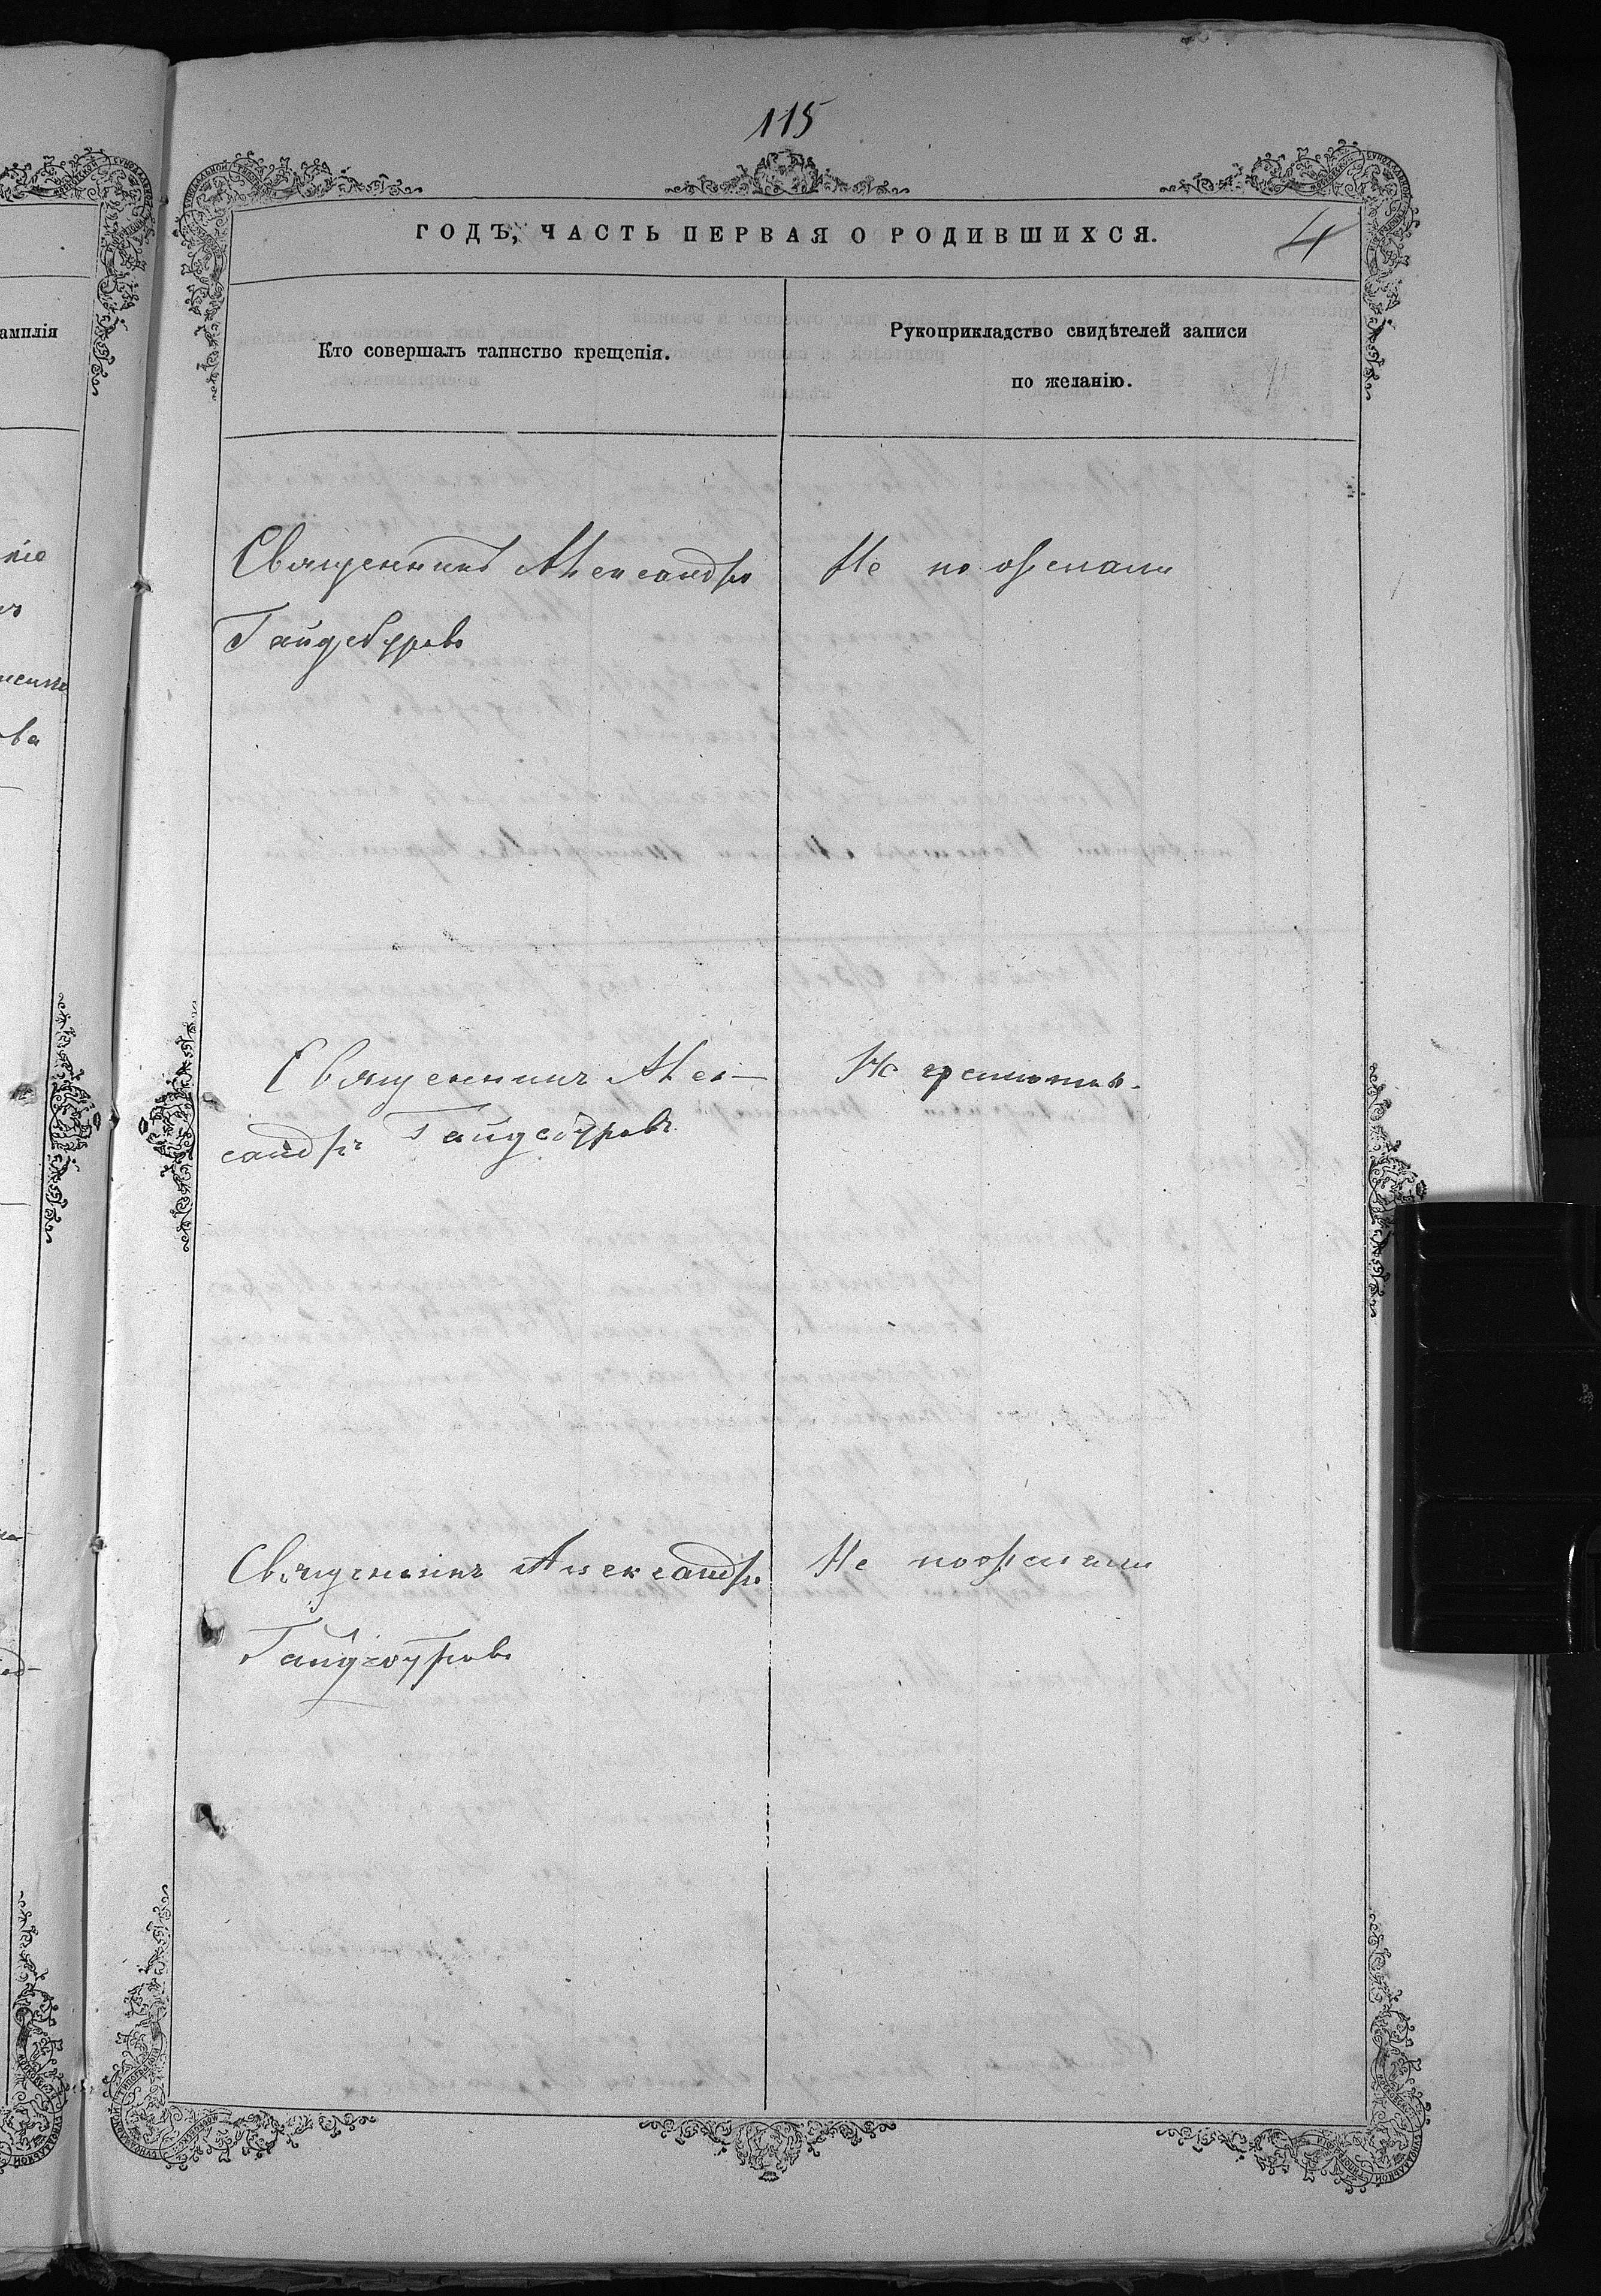 115
ГОДЪ, ЧАСТЬ ПЕРВАЯ О РОДИВШИХСЯ.
4
амилія
Кто совершалъ таинство крещенія.
Рукоприкладство свидѣтелей записи
по желанію.
Священникъ Александръ
Не пожелали
Гайдебуровъ
Священникъ Алек-
Не грамотны.
сандръ Гайдебуровъ
Священникъ Александръ
Не пожелали
Гайдебуровъ